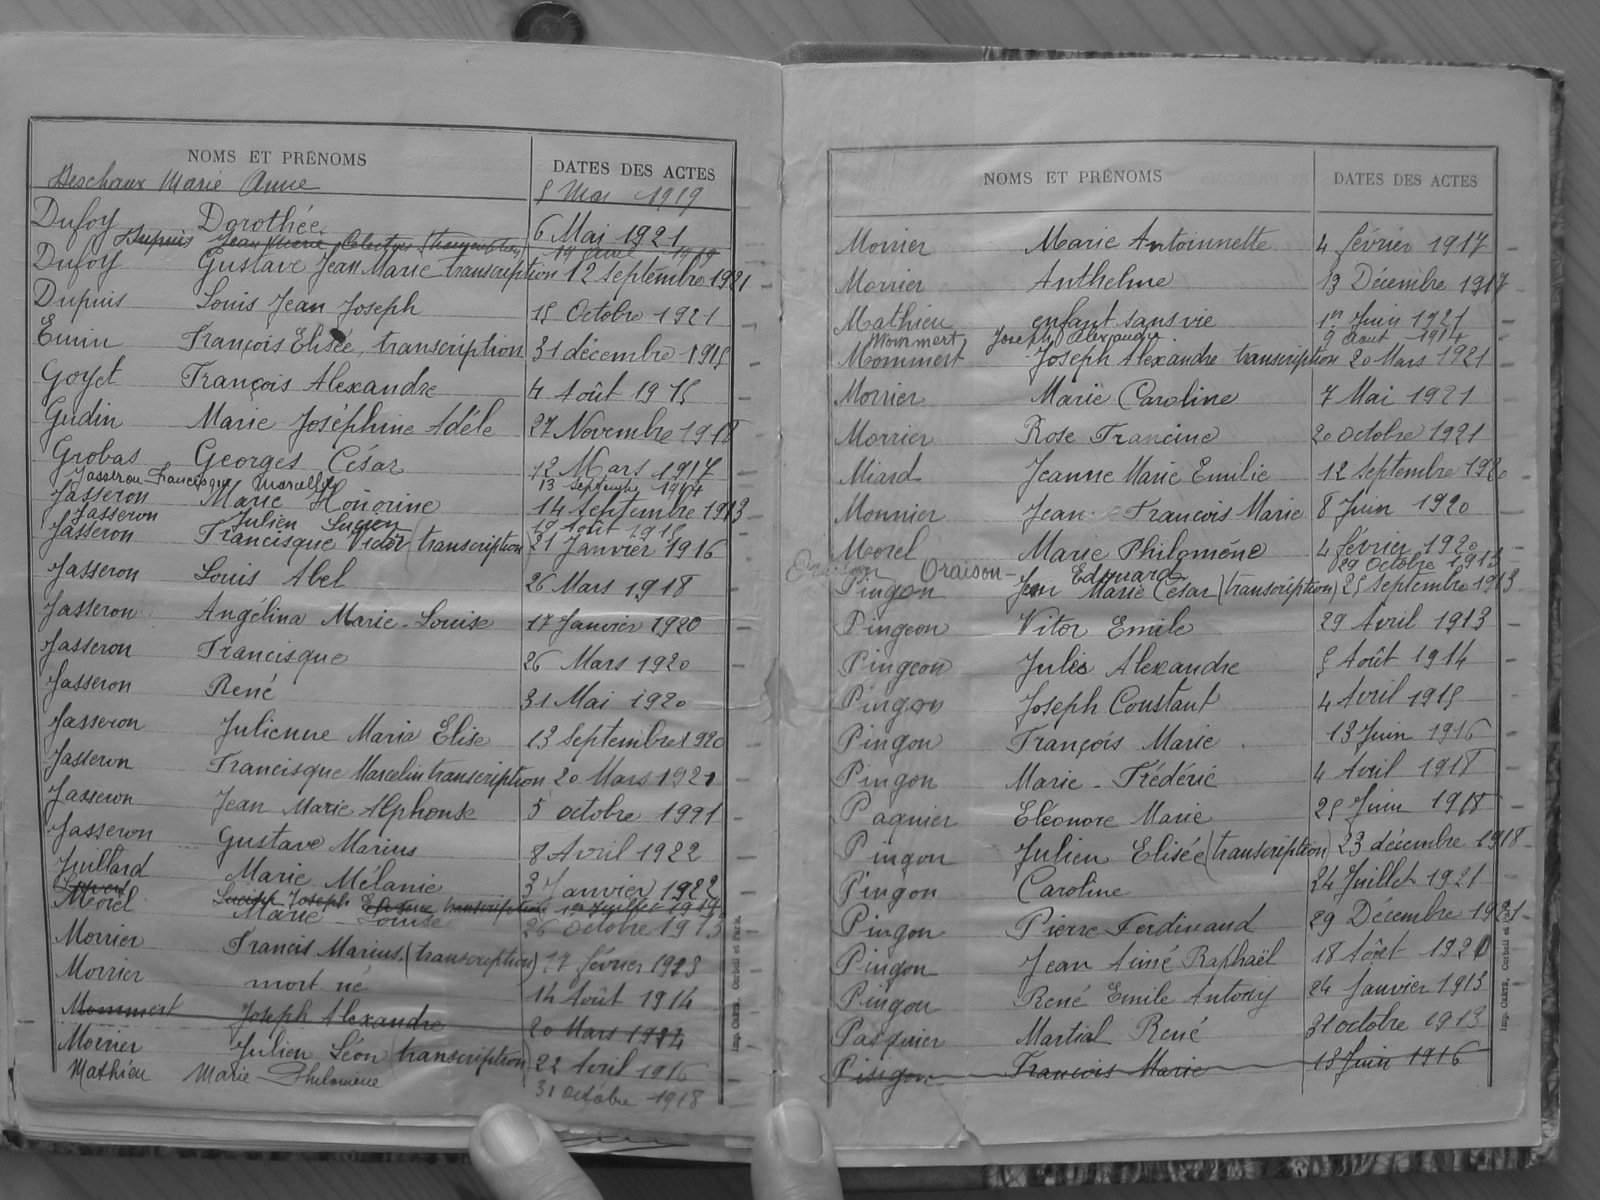 NOMS ET PRÉNOMS DATES DES ACTES
Deschaux Marie Anne 5 Mai 1919
Dufoy Dorothée 6 Mai 1921
Dupuis Jean Marie (transcription) 19 1919
Dufoy Gustave Jean Marie transcription 12 Septembre 1921
Dupuis Louis Jean Joseph 15 Octobre 1921
Emin François Elisée, transcription 31 décembre 1915
Goyet François Alexandre 4 Août 1915
Gudin Marie Joséphine Adéle 27 Novembre 1918
Grobas Georges César 12 Mars 1917
Jasseron Francisque Marcellin 13 Septembre 1914
Jasseron Marie Honorine 14 Septembre 1913
Jasseron Julien Lucien 19 Août 1915
Jasseron Francisque Victor (transcription) 21 Janvier 1916
Jasseron Louis Abel 26 Mars 1918
Jasseron Angélina Marie-Louise 17 Janvier 1920
Jasseron Francisque 26 Mars 1920
Jasseron René 31 Mai 1920
Jasseron Julienne Maria Elise 13 Septembre 1920
Jasseron Francisque Marcelin transcription 20 Mars 1921
Jasseron Jean Marie Alphonse 5 octobre 1921
Jasseron Gustave Marius 8 Avril 1922
Juillard Marie Mélanie 3 Janvier 1922
Joseph transcription Juillet 1919
Morel Marie Louise 26 Octobre 1913
Morrier Francis Marius (transcription) 17 février 1923
Morrier mort né 14 Août 1914
Mommert Joseph Alexandre 20 Mars 1921
Morrier Julien Léon (transcription) 22 Avril 1916
Mathieu Marie Philomène 31 Octobre 1918
Imp. Crété, Corbeil et Paris.
NOMS ET PRÉNOMS DATES DES ACTES
Morrier Marie Antoinnette 4 février 1917
Morrier Anthelme 13 Décembre 1917
Mathieu enfant sans vie 1er Juin 1921
Mommert Joseph Alexandre 9 Août 1914
Mommert Joseph Alexandre transcription 20 Mars 1921
Morrier Marie Caroline 7 Mai 1921
Morrier Rose Francine 20 octobre 1921
Miard Jeanne Marie Emilie 12 Septembre 1920
Monnier Jean François Marie 8 Juin 1920
Morel Marie Philoméne 4 février 1920
Oraison Edouard 29 Octobre 1913
Pingon Jean Marie César (transcription) 25 Septembre 1913
Pingeon Vitor Emile 29 Avril 1913
Pingeon Jules Alexandre 5 Août 1914
Pingon Joseph Constant 4 Avril 1915
Pingon François Marie 13 Juin 1916
Pingon Marie-Frédéric 4 Avril 1918
Paquier Eléonore Marie 25 Juin 1918
Pingon Julien Elisée (transcription) 23 décembre 1918
Pingon Caroline 24 Juillet 1921
Pingon Pierre Ferdinand 29 Décembre 1921
Pingon Jean Aimé Raphaël 18 Aôut 1920
Pingon René Emile Antony 24 Janvier 1913
Pasquier Martial René 31 octobre 1913
Pingon François Marie 13 Juin 1916
Imp. Crété, Corbeil et Paris.